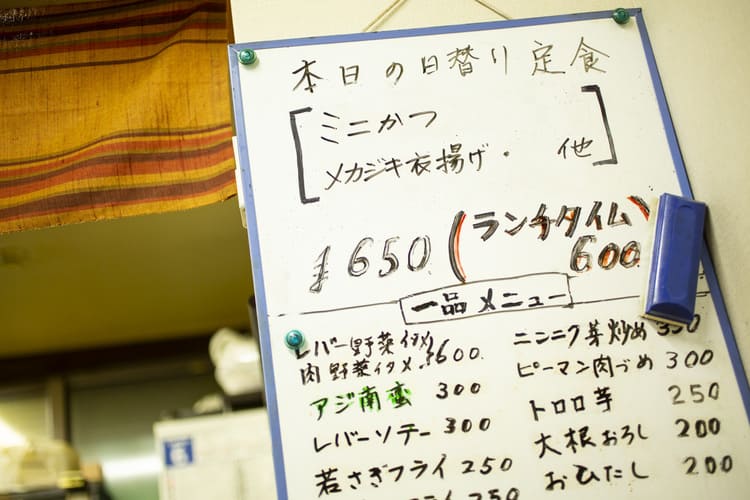 本日の日替り定食
ミニかつ
メカジキ衣揚げ・ 他
¥650 (ランチタイム
600)
一品メニュー
レバー野菜イタメ
肉野菜イタメ ¥600
アジ南蛮 300
レバーソテー 300
若さぎフライ 250
フライ 250
ニンニク芽炒め 350
ピーマン肉づめ 300
トロロ芋 250
大根おろし 200
おひたし 200